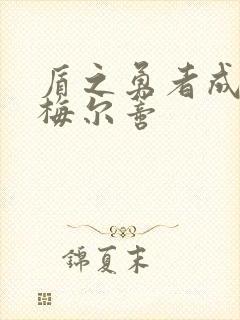 盾之勇者成
梅尔善
錦夏末